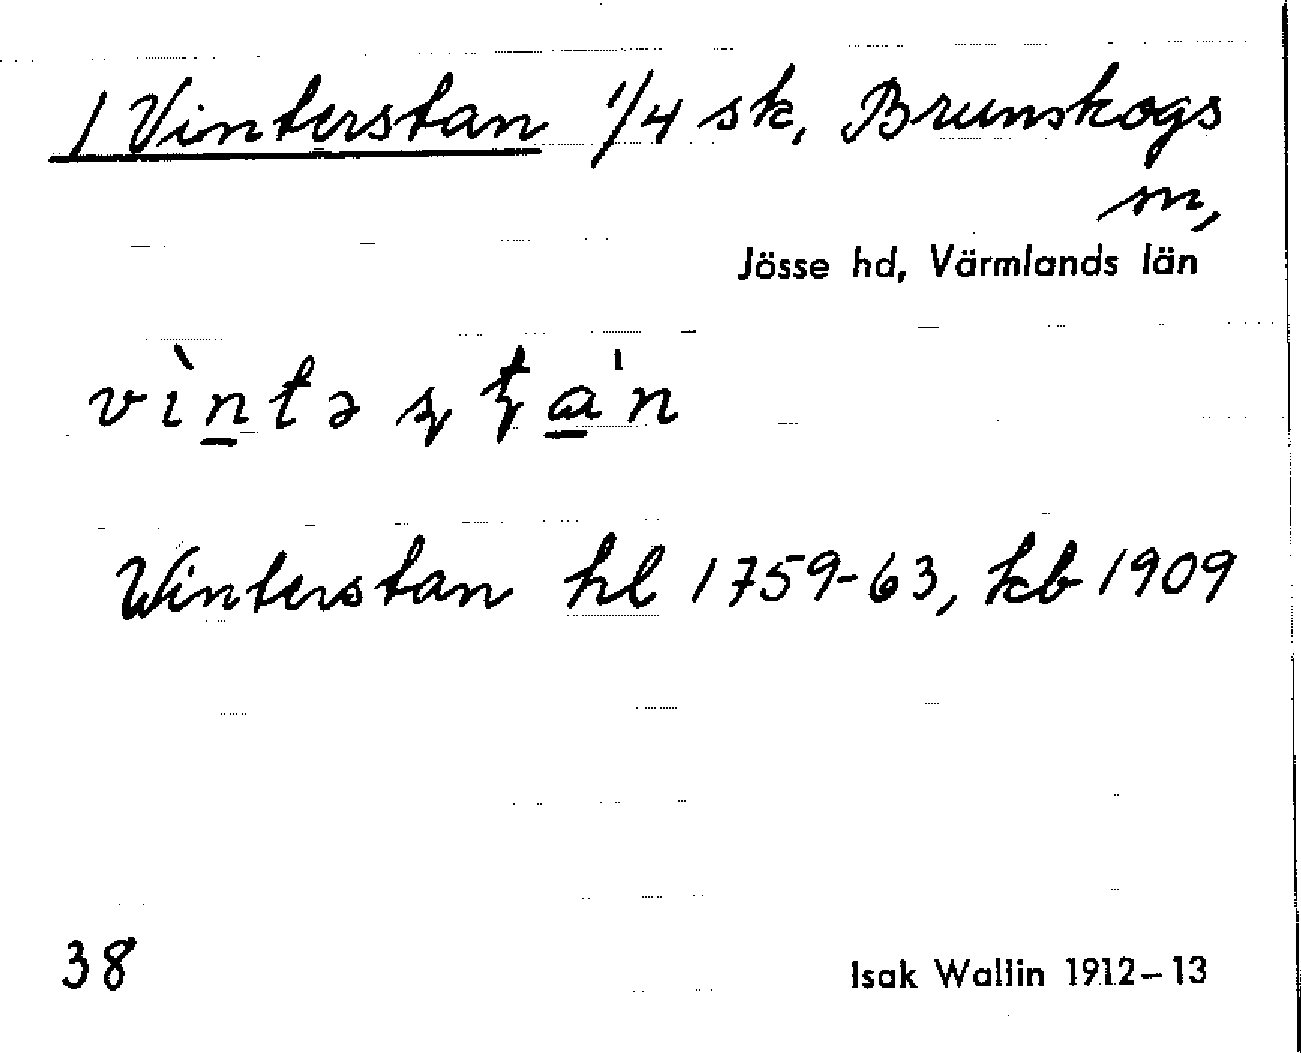 1 Vinterstan 1/4 sk, Brunskogs
sn,
Jösse hd, Värmlands län
Winterstan hl 1759-63, kb 1909
38
Isak Wallin 1912–13